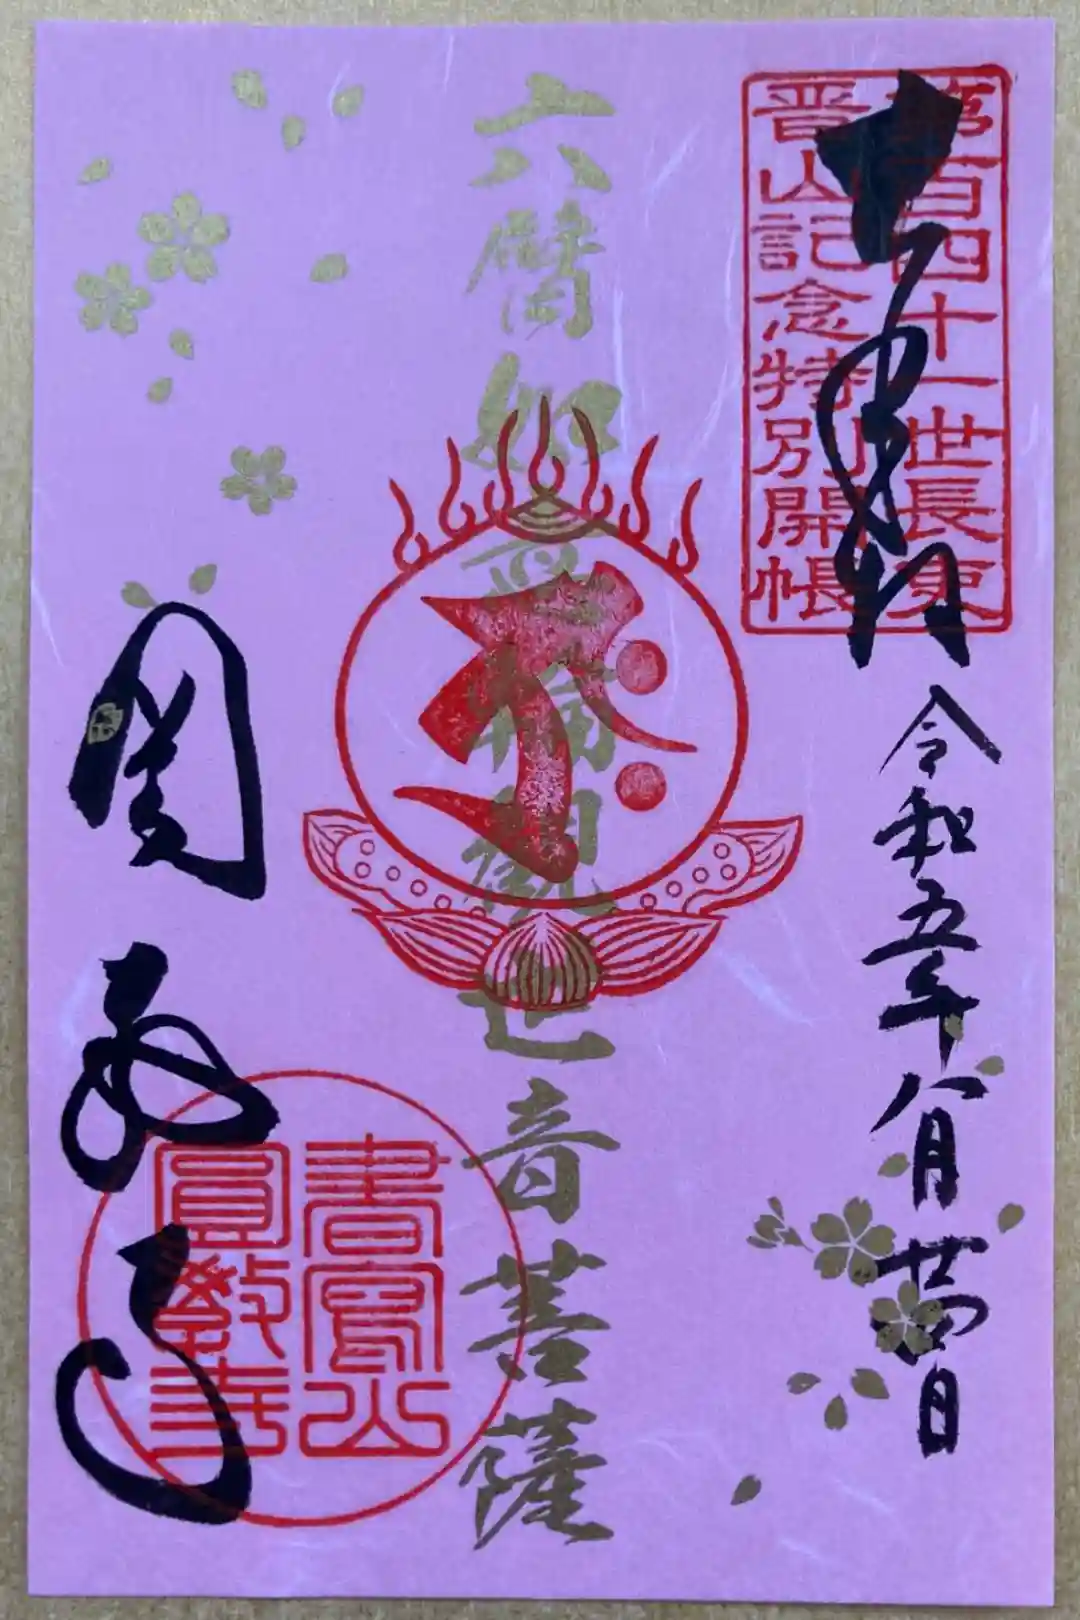 第百四十一世長吏
晋山記念特別開帳
奉拝
令和五年八月廿四日
六臂如意輪観世音菩薩
圓教寺
書寫山
圓教寺